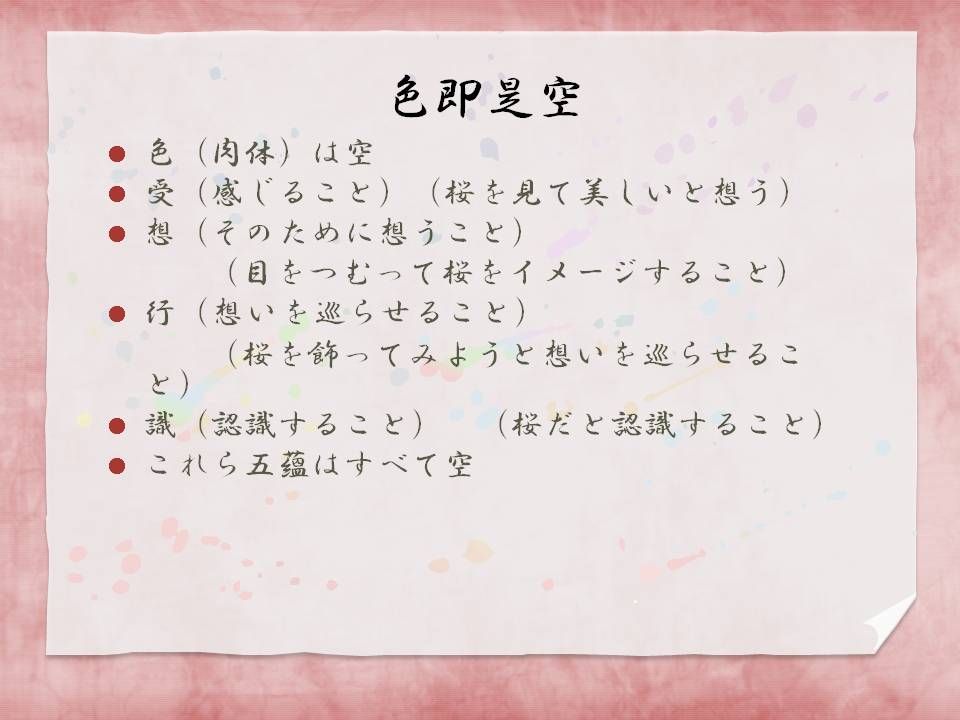 色即是空
色（肉体）は空
受（感じること）（桜を見て美しいと想う）
想（そのために想うこと）
（目をつむって桜をイメージすること）
行（想いを巡らせること）
（桜を飾ってみようと想いを巡らせるこ
と）
識（認識すること）　（桜だと認識すること）
これら五蘊はすべて空